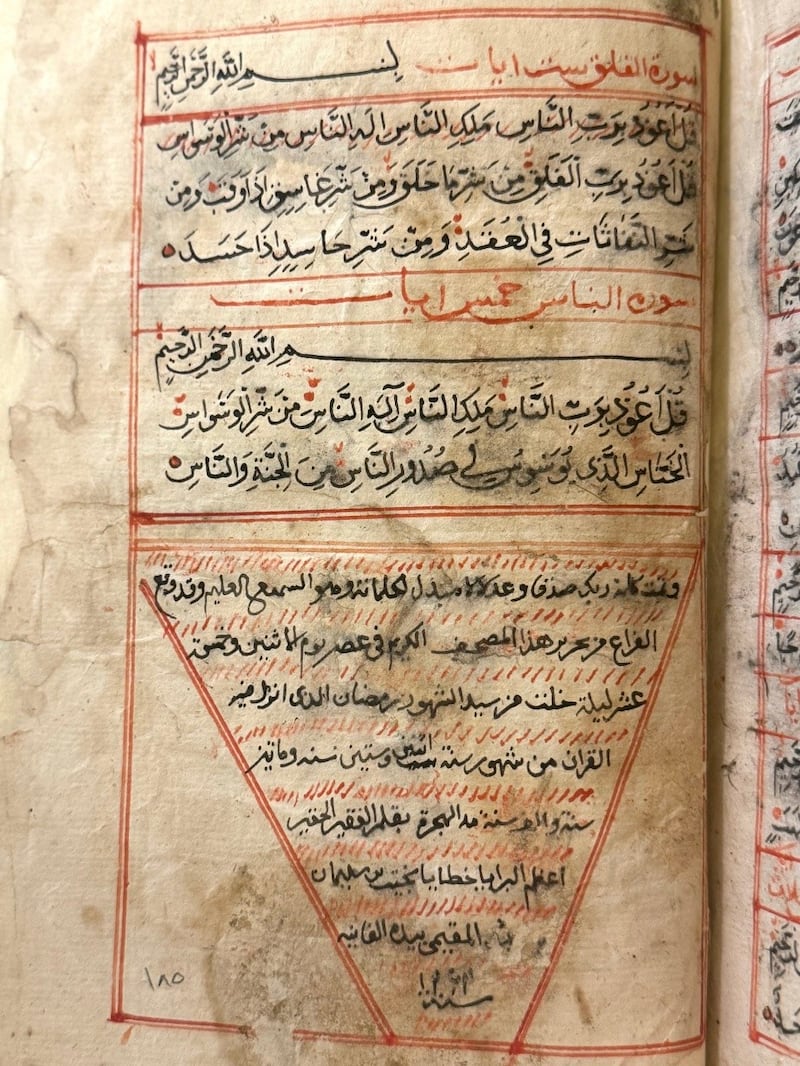 سورة الفلق ست ايات بسم الله الرحمن الرحيم
قُل أَعُوذ بِرَبِّ النَّاسِ مَلِكِ النَّاسِ الَهِ النَّاسِ مِنْ شَرِّ الْوَسْوَاسِ
قُل أَعُوذ بِرَبِّ الْفَلَقِ مِنْ شَرِّ مَا خَلَقَ وَمِنْ شَرِّ غَاسِقٍ اذَا وَقَبَ وَمِن
شَرِّ النَّفَّاثَاتِ فِي الْعُقَدِ وَمِنْ شَرِّ حَاسِدٍ إِذَا حَسَدَ
سورة الناس خمس ايات
بسم الله الرحمن الرحيم
قُلْ أَعُوذُ بِرَبِّ النَّاسِ مَلِكِ النَّاسِ آلِهِ النَّاسِ مِنْ شَرِّ الْوَسْوَاسِ
الْخَنَّاسِ الَّذِي يُوَسْوِسُ فِي صُدُورِ النَّاسِ مِنَ الْجِنَّةِ وَالنَّاسِ
وتمت كلمة ربك صدقا وعدلا لا مبدل لكلماته وهو السميع العليم وقد وقع
الفراغ من تحرير هذا المصحف الكريم في عصر يوم الاثنين وخمسة
عشر ليلة خلت من سيد الشهور رمضان الذي انزل فيه
القران من شهور سنة اثنين وستين سنه وماتين
سنه والف سنة من الهجرة بقلم الفقير الحقير
اعظم البرايا خطايا بخيت بن سليمان
المقيمي بيده الفانيه
سنة
١٨٥